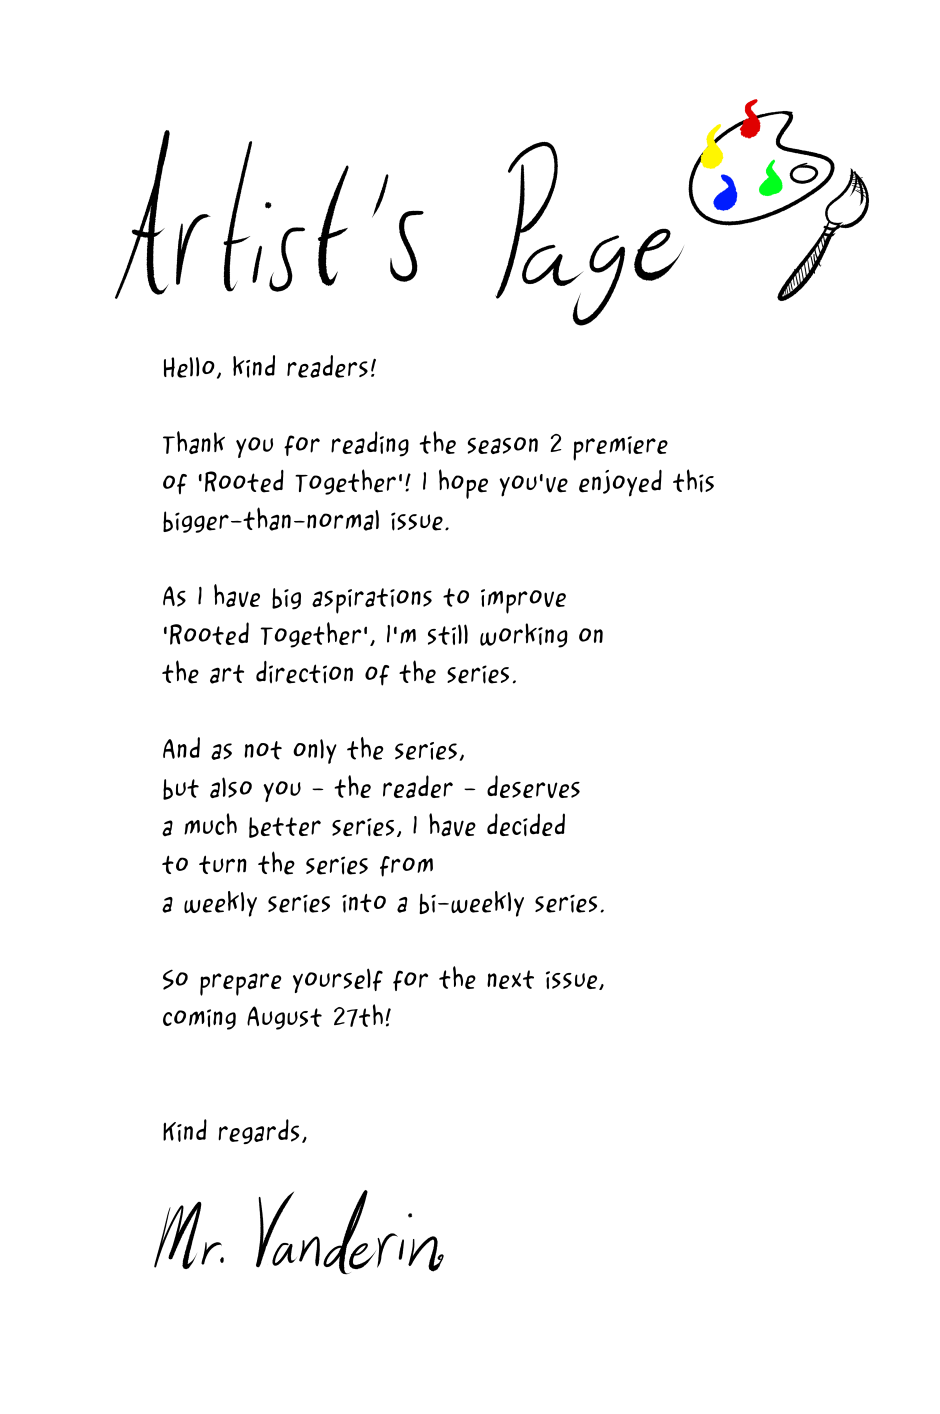 Artist's Page
Hello, kind readers!
Thank you for reading the season 2 premiere
of 'Rooted Together'! I hope you've enjoyed this
bigger-than-normal issue.
As I have big aspirations to improve
'Rooted Together', I'm still working on
the art direction of the series.
And as not only the series,
but also you - the reader - deserves
a much better series, I have decided
to turn the series from
a weekly series into a bi-weekly series.
So prepare yourself for the next issue,
coming August 27th!
Kind regards,
Mr. Vanderin